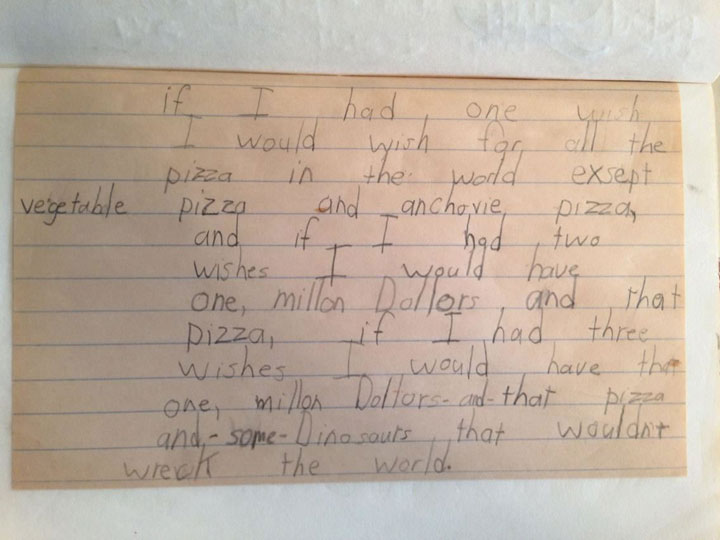 if I had one wish
I would wish for all the
pizza in the world exsept
vegetable pizza and anchovie pizza,
and if I had two
wishes I would have
one, millon Dollors and that
pizza, if I had three
wishes I would have that
one, millon Dollors-and-that pizza
and,-some-Dinosaurs that wouldn't
wreck the world.